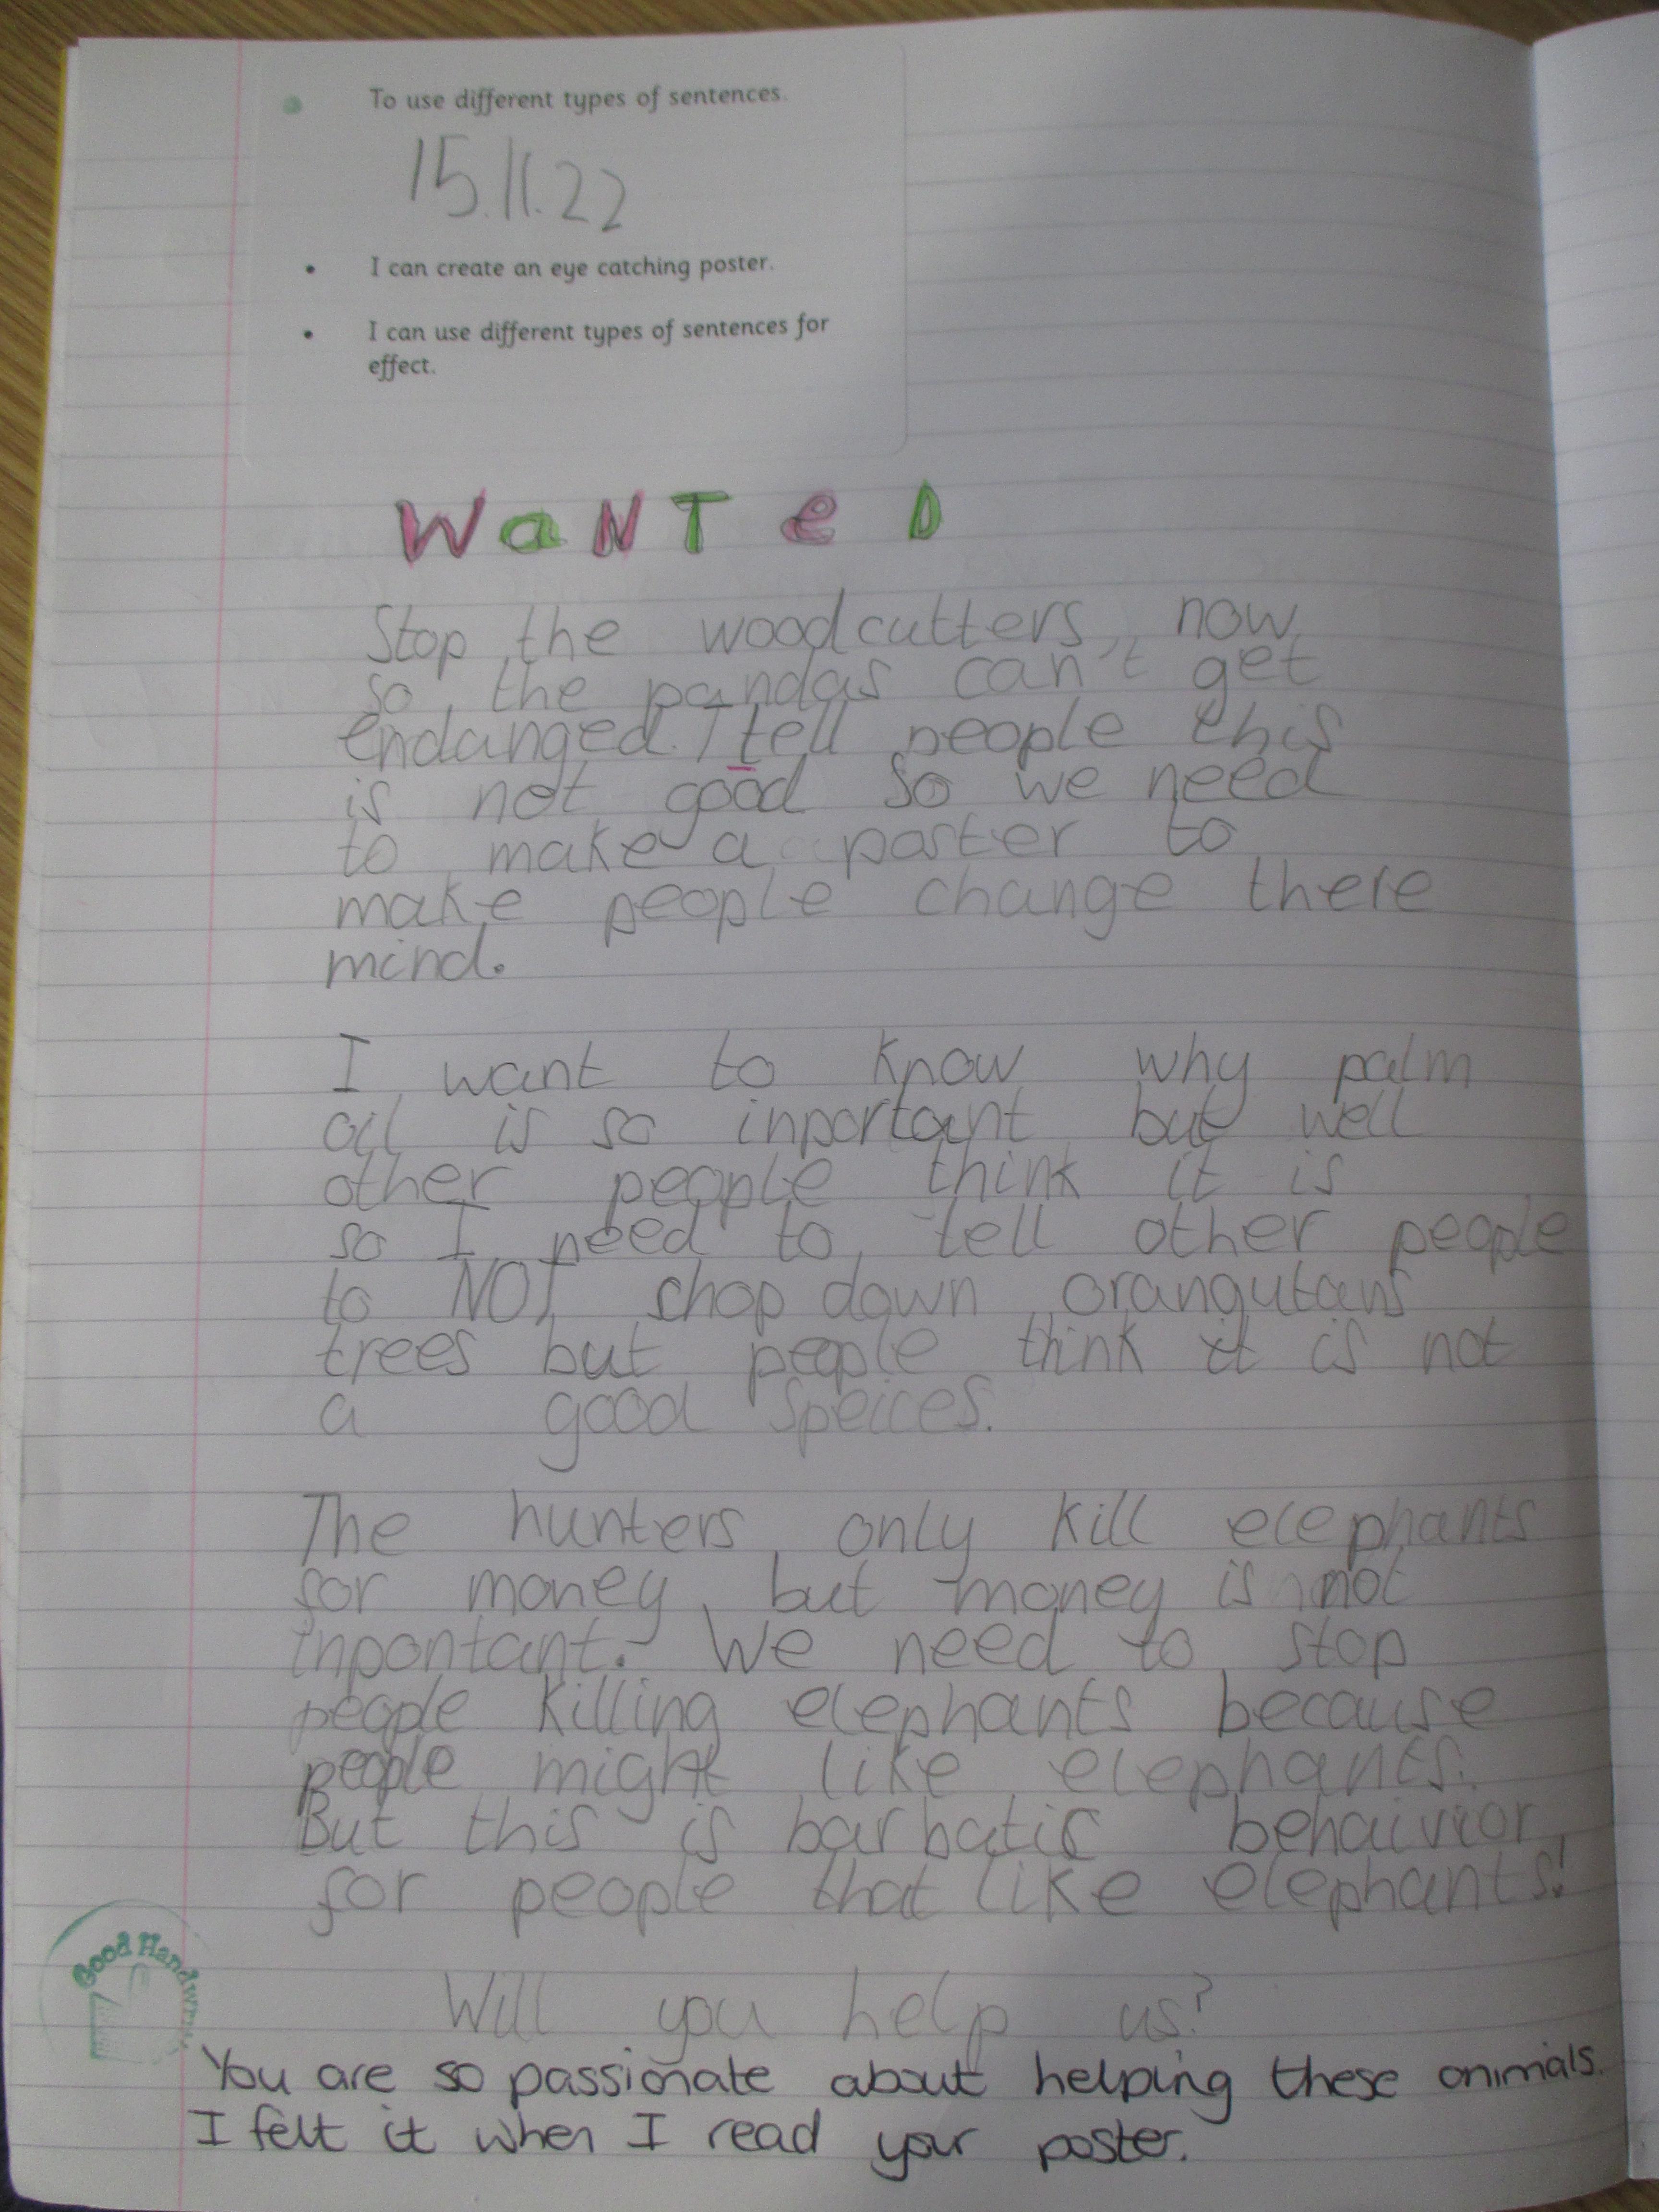 To use different types of sentences.
15.11.22
• I can create an eye catching poster.
• I can use different types of sentences for
effect.
WaNTeD
Stop the woodcutters, now
so the pandas can't get
endanged. I tell people this
is not good so we need
to make a poster to
make people change there
mind.
I want to know why palm
oil is so inportant but well
other people think it is
so I need to tell other people
to NOT chop down orangutans
trees but people think it is not
a good speices.
The hunters only kill elephants
for money, but money is not
inpontant. We need to stop
people killing elephants because
people might like elephants.
But this is barbatic behaivior
for people that like elephants!
Will you help us?
Good Handwriting
You are so passionate about helping these animals.
I felt it when I read your poster.